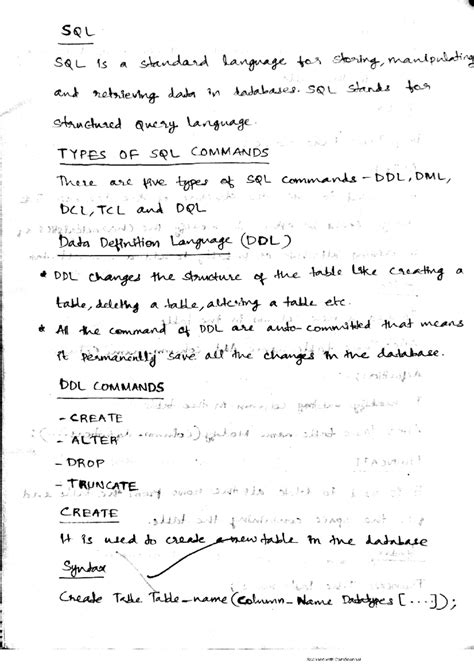 SQL
SQL is a standard language for storing, manipulating
and retrieving data in databases. SQL stands for
Structured Query Language.
TYPES OF SQL COMMANDS
There are five types of SQL commands - DDL, DML,
DCL, TCL and DQL
Data Definition Language (DDL)
* DDL changes the structure of the table like creating a
table, deleting a table, altering a table etc.
* All the command of DDL are auto-committed that means
it permanently save all the changes in the database.
DDL COMMANDS
- CREATE
- ALTER
- DROP
- TRUNCATE
CREATE
It is used to create a new table in the database
Syntax
Create Table Table_name (column_Name Datatypes [...]);